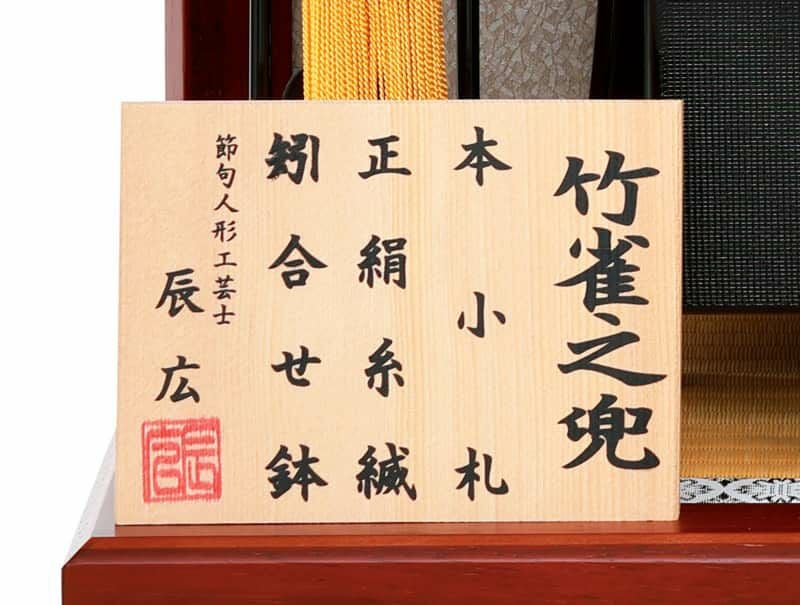 竹雀之兜
本小札
正絹糸縅
矧合せ鉢
節句人形工芸士
辰広